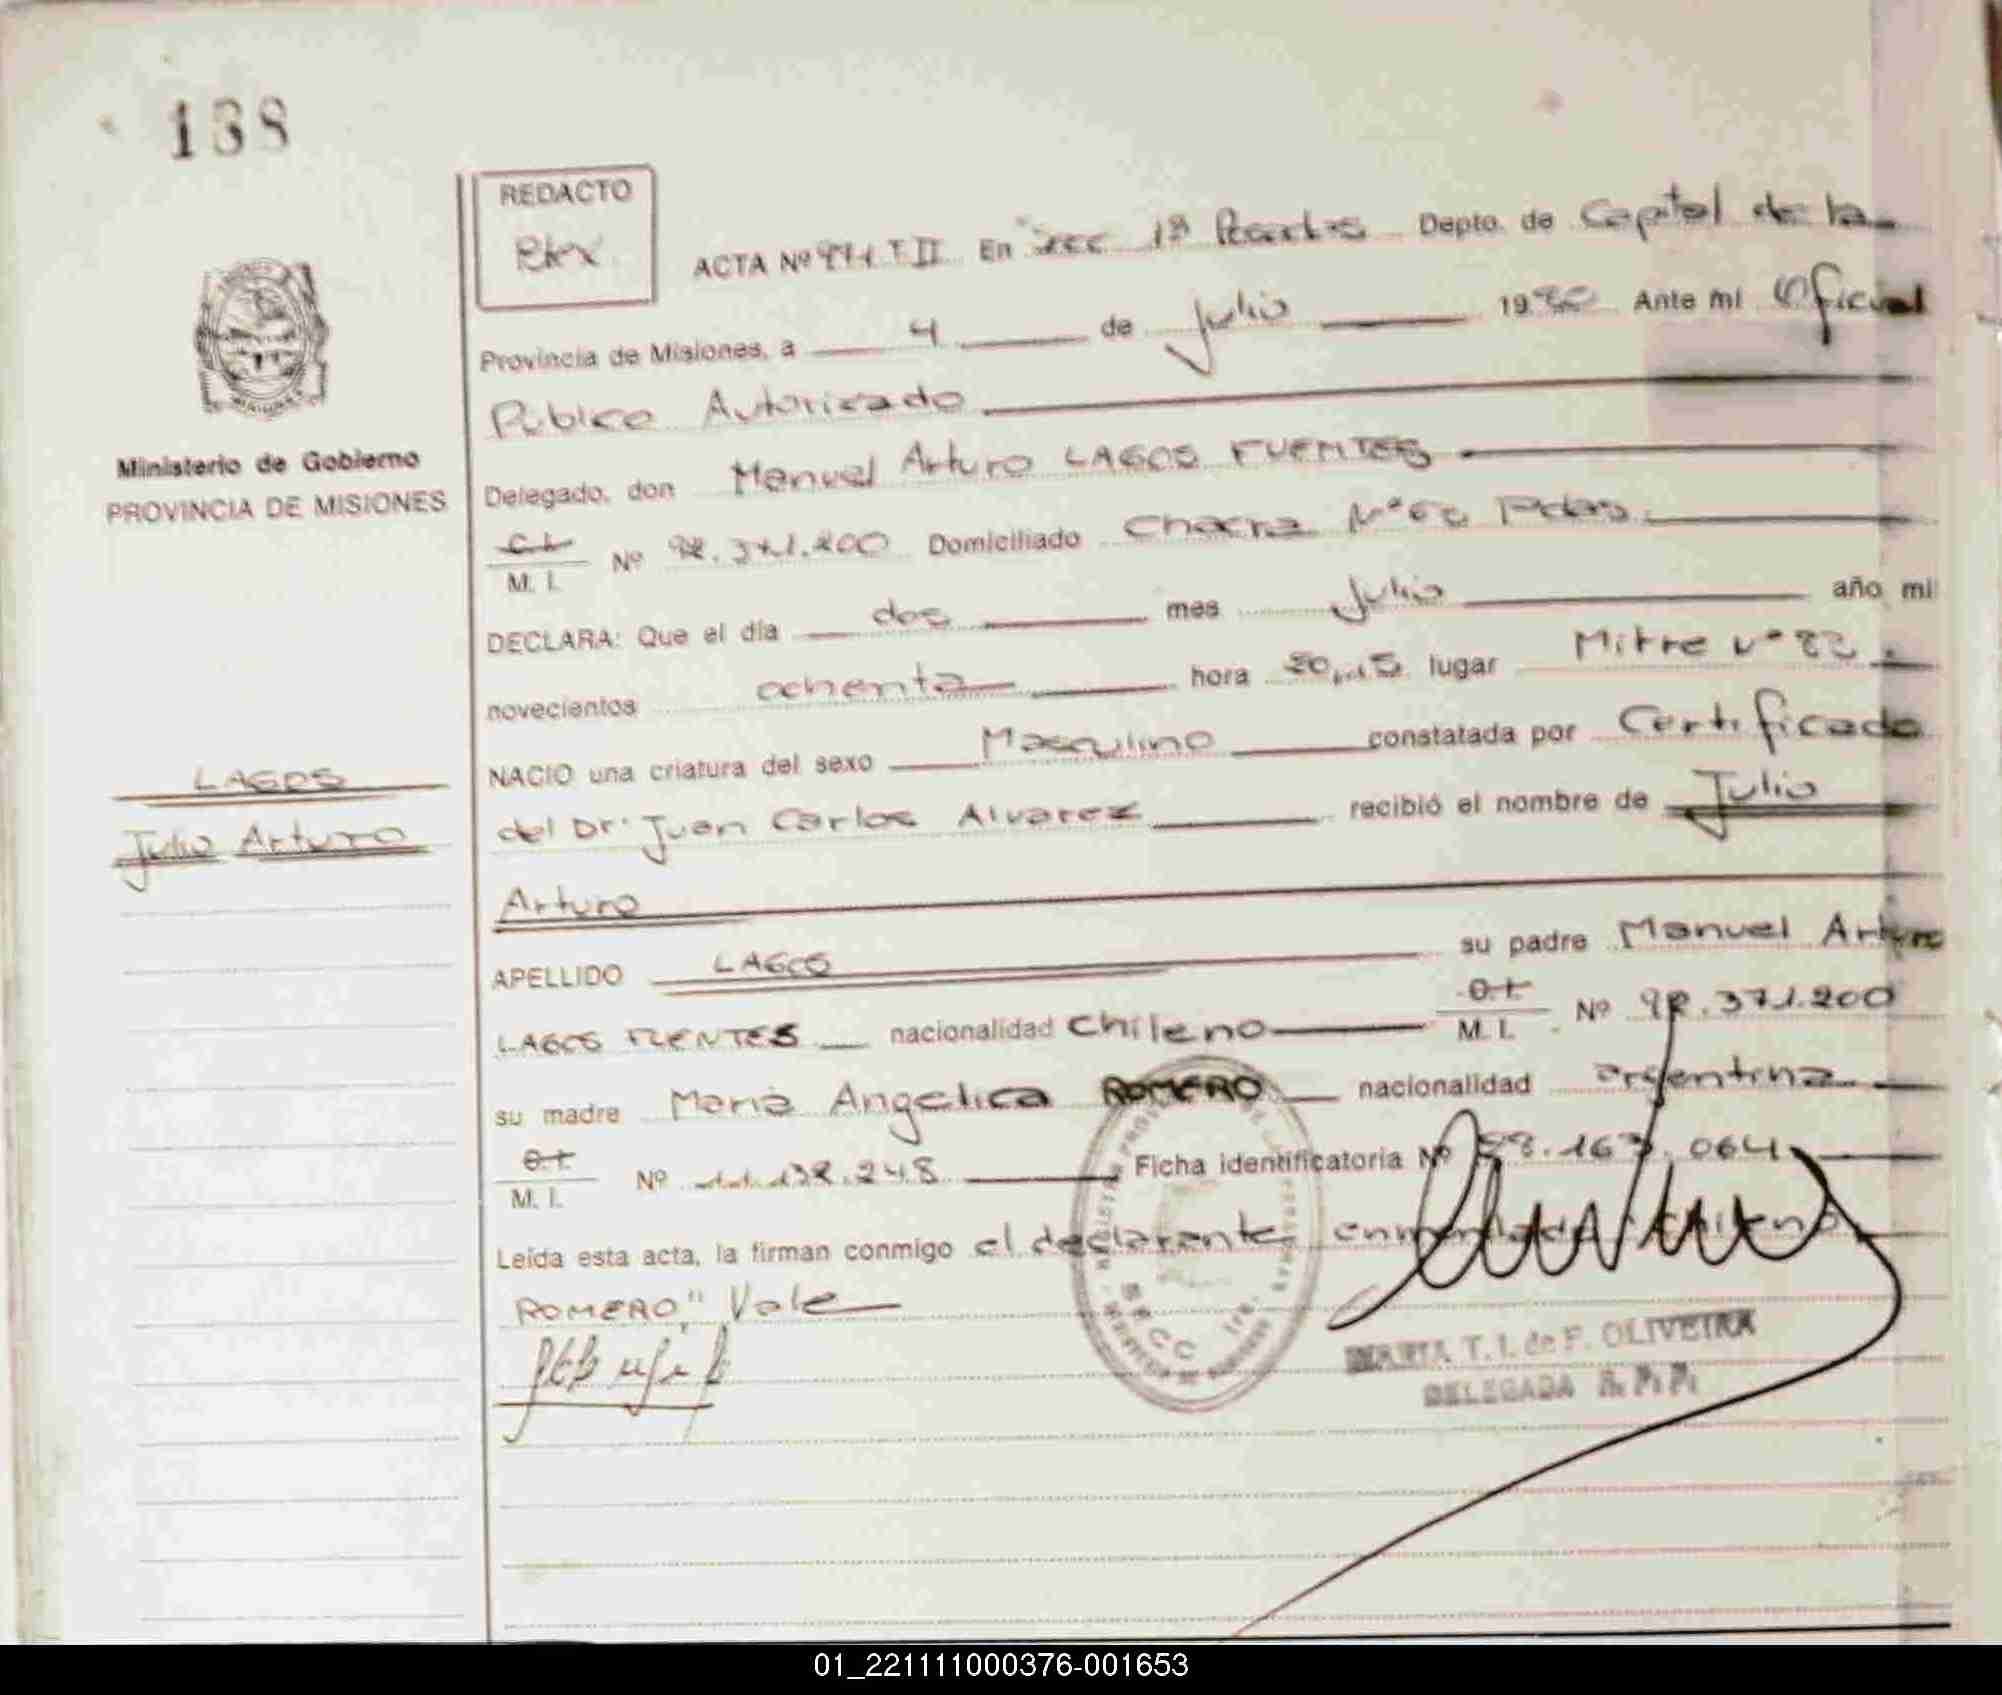 138
REDACTO
ACTA Nº T II En Sec 1ª Depto. de Capital de la
Provincia de Misiones, a 4 de Julio 1980 Ante mi Oficial
Público Autorizado
Ministerio de Gobierno
PROVINCIA DE MISIONES
Delegado, don Manuel Arturo LAGOS FUENTES
C.I. M. I. Nº 92.371.200 Domiciliado Chacra Pdas.
DECLARA: Que el día dos mes Julio año mil
novecientos ochenta hora 20,15 lugar Mitre Nº
NACIO una criatura del sexo Masculino constatada por Certificado
LAGOS
del Dr. Juan Carlos Alvarez recibió el nombre de Julio
Julio Arturo
Arturo
APELLIDO LAGOS su padre Manuel Arturo
LAGOS FUENTES nacionalidad Chileno M. I. Nº 92.371.200
su madre Maria Angelica ROMERO nacionalidad argentina
M. I. Nº 11.132.248 Ficha identificatoria Nº 163.064
Leída esta acta, la firman conmigo el declarante
ROMERO" Vale
MARIA T. I. de F. OLIVEIRA
DELEGADA
01_221111000376-001653